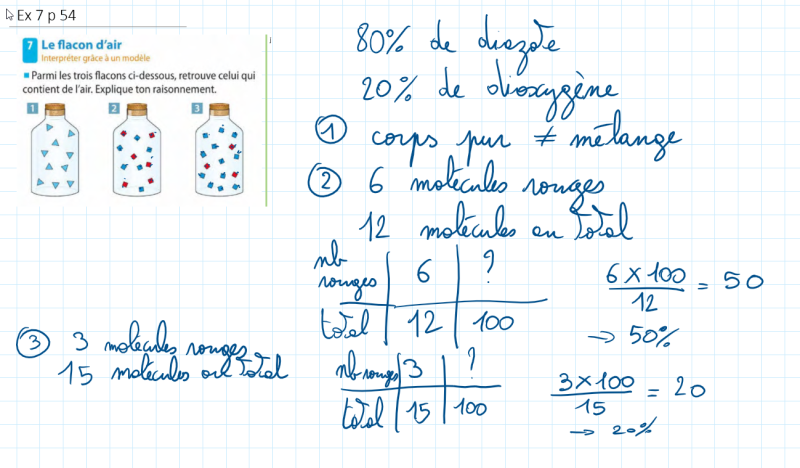 Ex 7 p 54
7 Le flacon d'air
Interpréter grâce à un modèle
Parmi les trois flacons ci-dessous, retrouve celui qui
contient de l'air. Explique ton raisonnement.
1 2 3
80% de diazote
20% de dioxygène
① corps pur ≠ mélange
② 6 molécules rouges
12 molécules au total
nb rouges | 6 | ?
total | 12 | 100
6 × 100 / 12 = 50
→ 50%
③ 3 molécules rouges
15 molécules au total
nb rouges | 3 | ?
total | 15 | 100
3 × 100 / 15 = 20
→ 20%